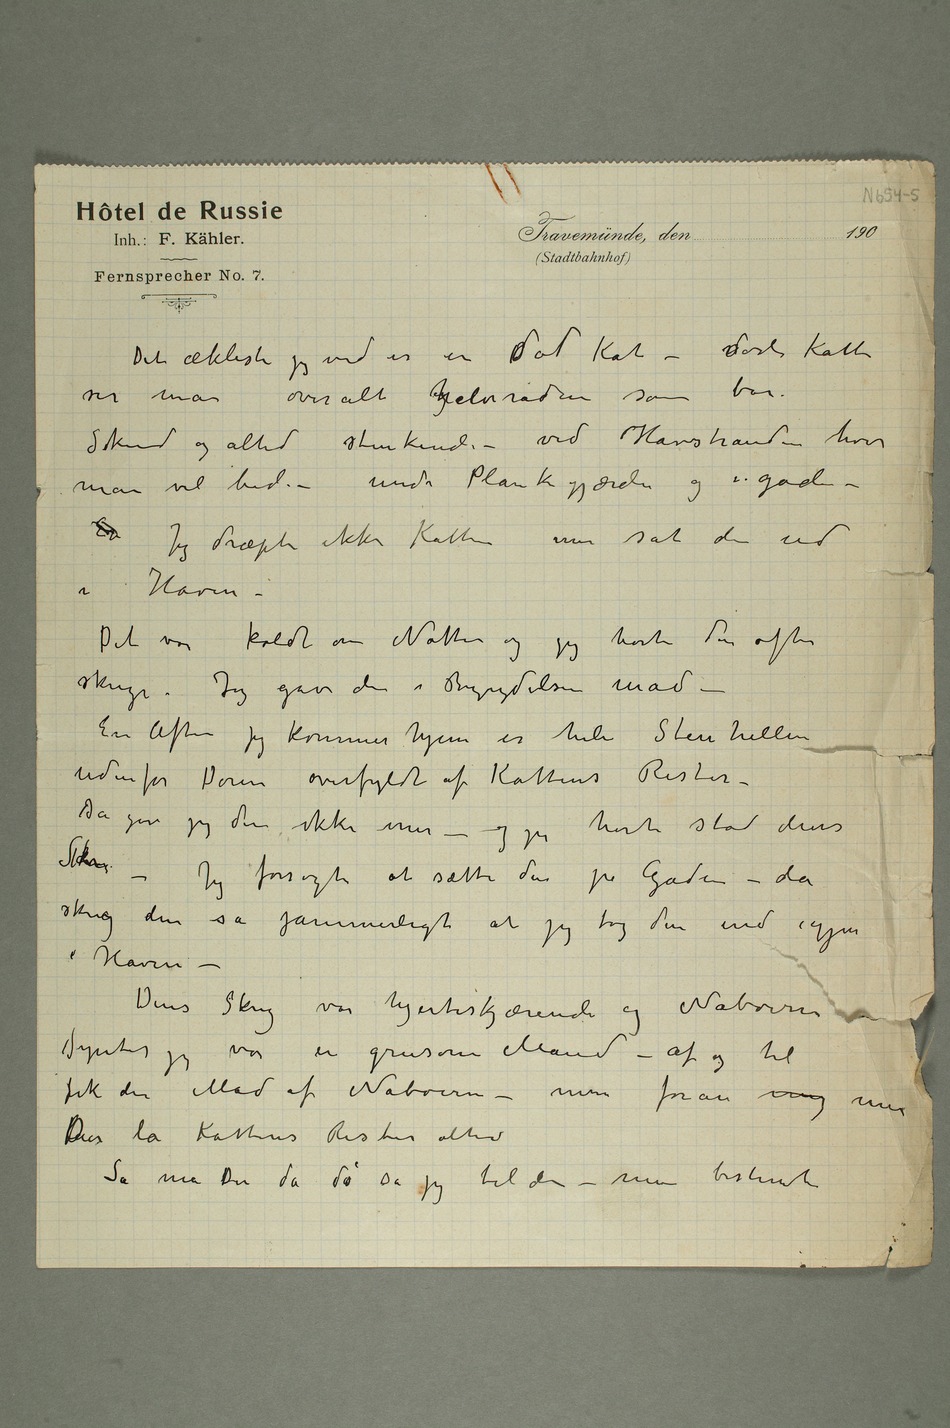 N654-5
Hôtel de Russie
Inh.: F. Kähler.
Fernsprecher No. 7.
Travemünde, den 190
(Stadtbahnhof)
Det ækleste jeg ved er en død Kat – døde Katte
ser man overalt halvrådne som bær.
Skind og altid stinkende – ved Havstranden hvor
man vil bade – under Plankegjærder og i gader –
Jeg dræpte ikke Katten men sat den ud
i Haven –
Det var koldt om Natten og jeg hørte den ofte
skrige. Jeg gav den i Begyndelsen mad –
En Aften jeg kommer hjem er hele Stenhellen
udenfor Døren overfyldt af Kattens Rester –
Da gav jeg den ikke mer – og jeg hørte stad dens
Skrig – Jeg forsøgte at sætte den på Gaden – da
skreg den så jammerligt at jeg tog den ind igjen
i Haven –
Dens Skrig var hjerteskjærende og Naboerne
syntes jeg var en grusom Mand – af og til
fik den Mad af Naboerne – men foran mig min
Dør lå Kattens Rester altid
Så må Du da dø sa jeg til den – men bestemte